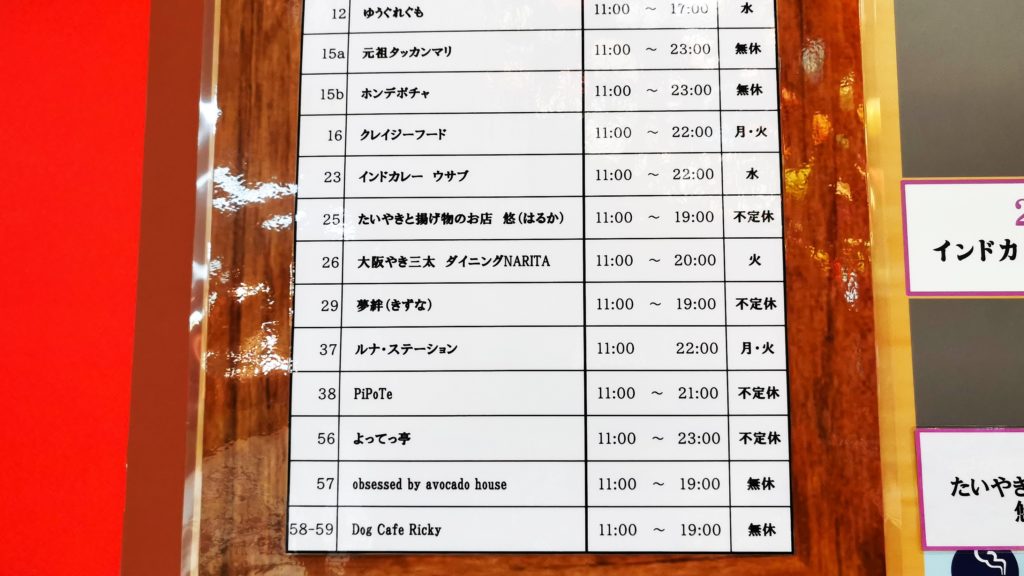 12 ゆうぐれぐも 11:00 ～ 17:00 水
15a 元祖タッカンマリ 11:00 ～ 23:00 無休
15b ホンデポチャ 11:00 ～ 23:00 無休
16 クレイジーフード 11:00 ～ 22:00 月・火
23 インドカレー ウサブ 11:00 ～ 22:00 水
25 たいやきと揚げ物のお店 悠(はるか) 11:00 ～ 19:00 不定休
26 大阪やき三太 ダイニングNARITA 11:00 ～ 20:00 火
29 夢絆(きずな) 11:00 ～ 19:00 不定休
37 ルナ・ステーション 11:00 22:00 月・火
38 PiPoTe 11:00 ～ 21:00 不定休
56 よってっ亭 11:00 ～ 23:00 不定休
57 obsessed by avocado house 11:00 ～ 19:00 無休
58-59 Dog Cafe Ricky 11:00 ～ 19:00 無休
2
インドカ
たいやき